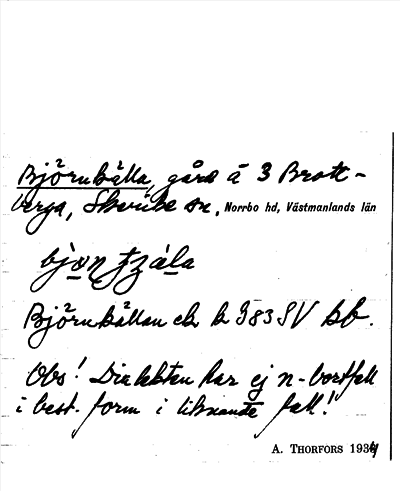 Björnkälla, gård å 3 Brott-
berga, Skerike sn. Norrbo hd, Västmanlands län
Björnkällan ek bl 983 SV bb.
Obs! Dialekten har ej n-bortfall
i best. form i liknande fall!
A. THORFORS 1934